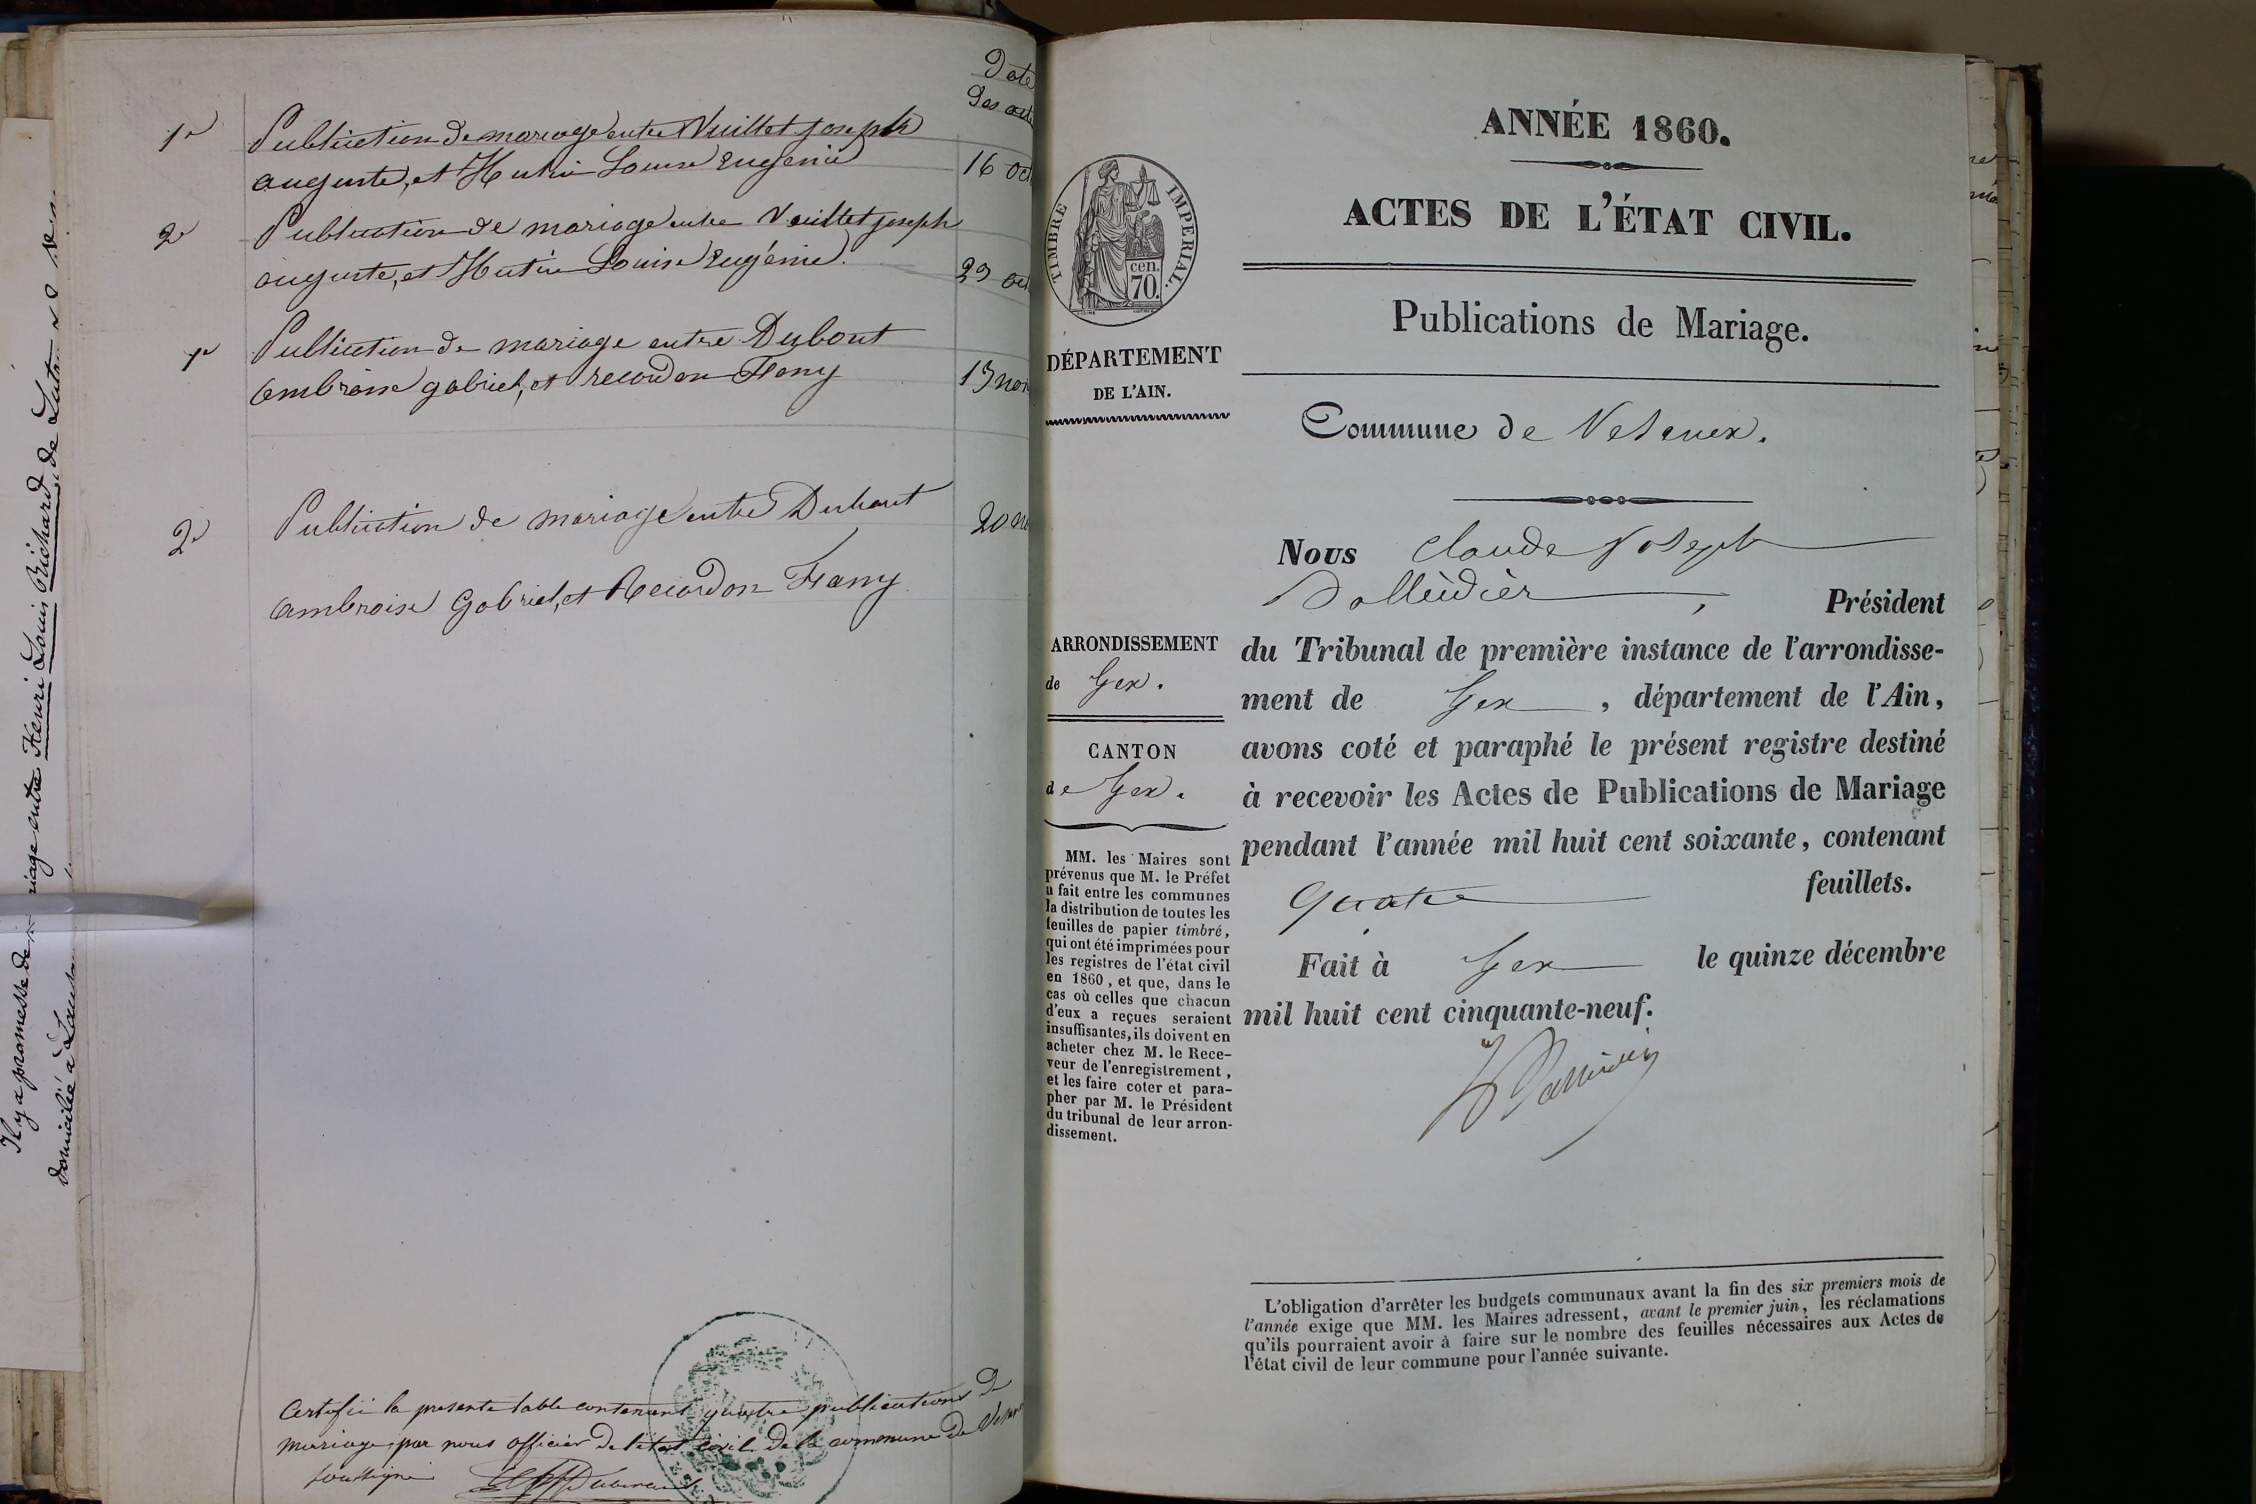 Date
Des act
1e Publication de mariage entre Vuillet joseph
auguste, et Hutin Louise Eugenie 16 oct
2e Publication de mariage entre Vuillet joseph
auguste, et Hutin Louise Eugénie. 23 oct
1e Publication de mariage entre Dubout
ambroise gabriel, et recordon Fany 13 nov
2e Publication de mariage entre Dubout 20 no
ambroise Gabriel, et Recordon Fany
Certifié la presente table contenant quatre publications de
mariage, par nous officier de l'etat civil de la commune de
soussigné
Il y a promesse de mariage entre Henri Louis Richard de
domiciliée à
ANNÉE 1860.
ACTES DE L'ÉTAT CIVIL.
TIMBRE IMPERIAL.
cen.
70.
Publications de Mariage.
DÉPARTEMENT
DE L'AIN.
Commune de Vesenex.
Nous Claude Joseph
Président
ARRONDISSEMENT
de Gex.
CANTON
de Gex.
du Tribunal de première instance de l'arrondisse-
ment de Gex, département de l'Ain,
avons coté et paraphé le présent registre destiné
à recevoir les Actes de Publications de Mariage
pendant l'année mil huit cent soixante, contenant
quatre feuillets.
Fait à Gex le quinze décembre
mil huit cent cinquante-neuf.
MM. les Maires sont
prévenus que M. le Préfet
a fait entre les communes
la distribution de toutes les
feuilles de papier timbré,
qui ont été imprimées pour
les registres de l'état civil
en 1860, et que, dans le
cas où celles que chacun
d'eux a reçues seraient
insuffisantes, ils doivent en
acheter chez M. le Rece-
veur de l'enregistrement,
et les faire coter et para-
pher par M. le Président
du tribunal de leur arron-
dissement.
L'obligation d'arrêter les budgets communaux avant la fin des six premiers mois de
l'année exige que MM. les Maires adressent, avant le premier juin, les réclamations
qu'ils pourraient avoir à faire sur le nombre des feuilles nécessaires aux Actes de
l'état civil de leur commune pour l'année suivante.